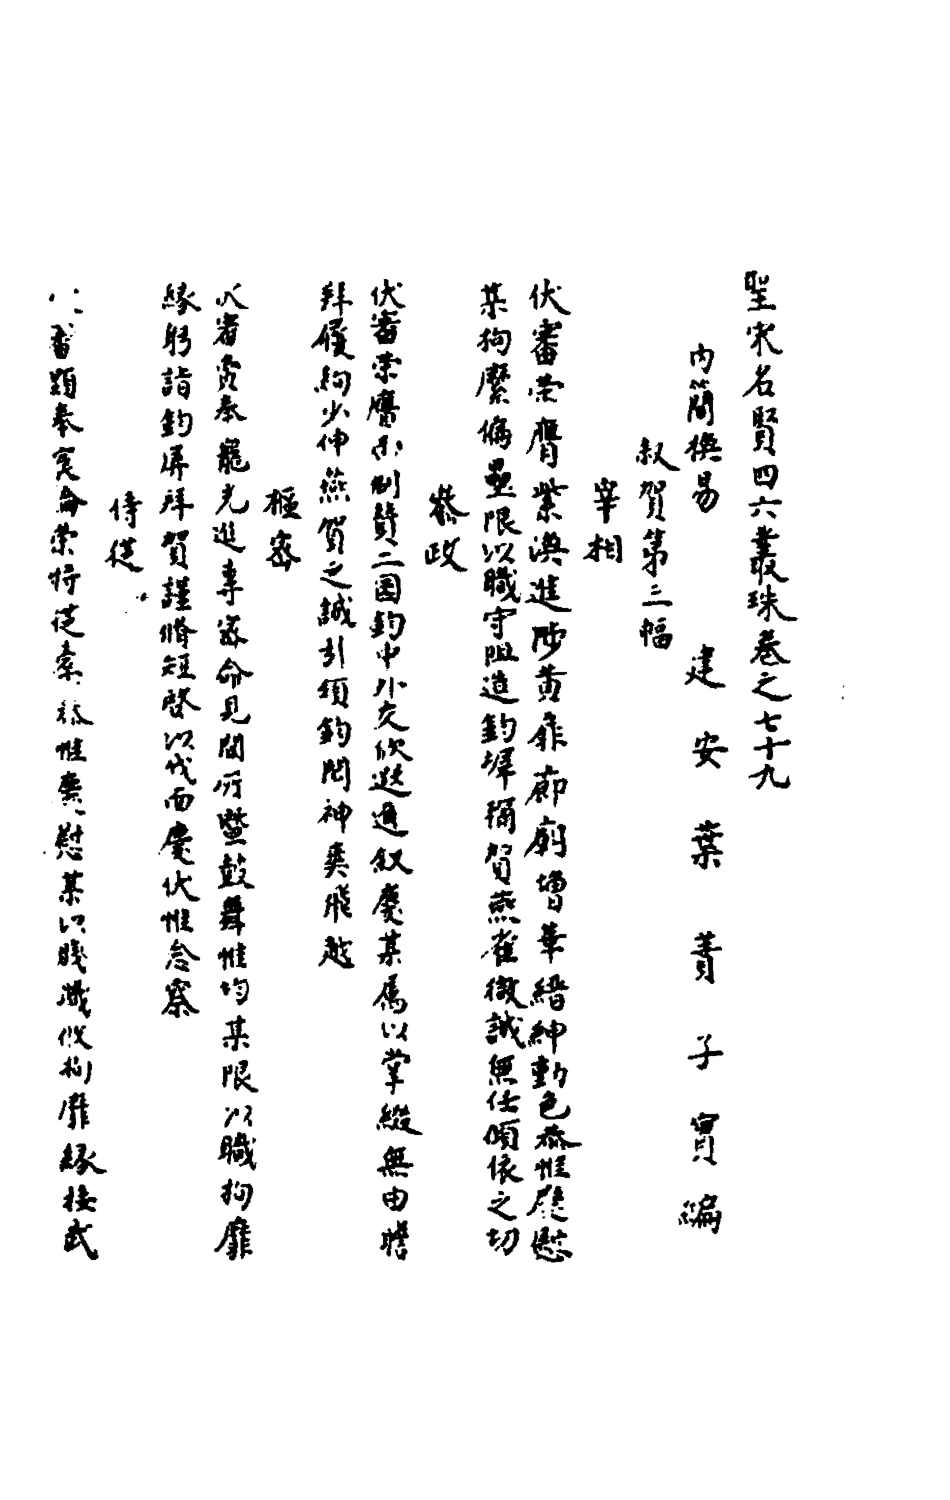 聖宋名賢四六叢珠卷之七十九
內簡換易 建安葉蕡子實編
叙賀第三幅
宰相
伏審榮膺紫渙進陟黃扉廊廟增華縉紳動色恭惟慶慰
某拘縻偏壘限以職守阻造鈞墀稱賀燕雀微誠無任傾依之切
叅政
伏審榮膺制贊二國鈞中外交欣遐邇叙慶某屬以掌綴無由瞻
拜履絢少伸燕賀之誠引領鈞閎神爽飛越
樞密
伏審奉寵光進專密命見聞所曁鼓舞惟均某限以職拘靡
緣躬詣鈞屏拜賀謹脩短啓以代面慶伏惟念察
侍從
審顯奉寃綸榮持從橐恭惟慶慰某以賤職攸拘靡緣接武